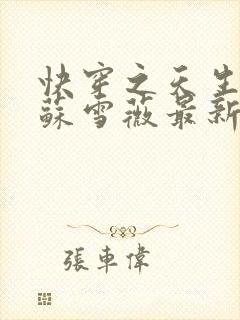 快穿之天生
蘇雪薇最新
張車偉